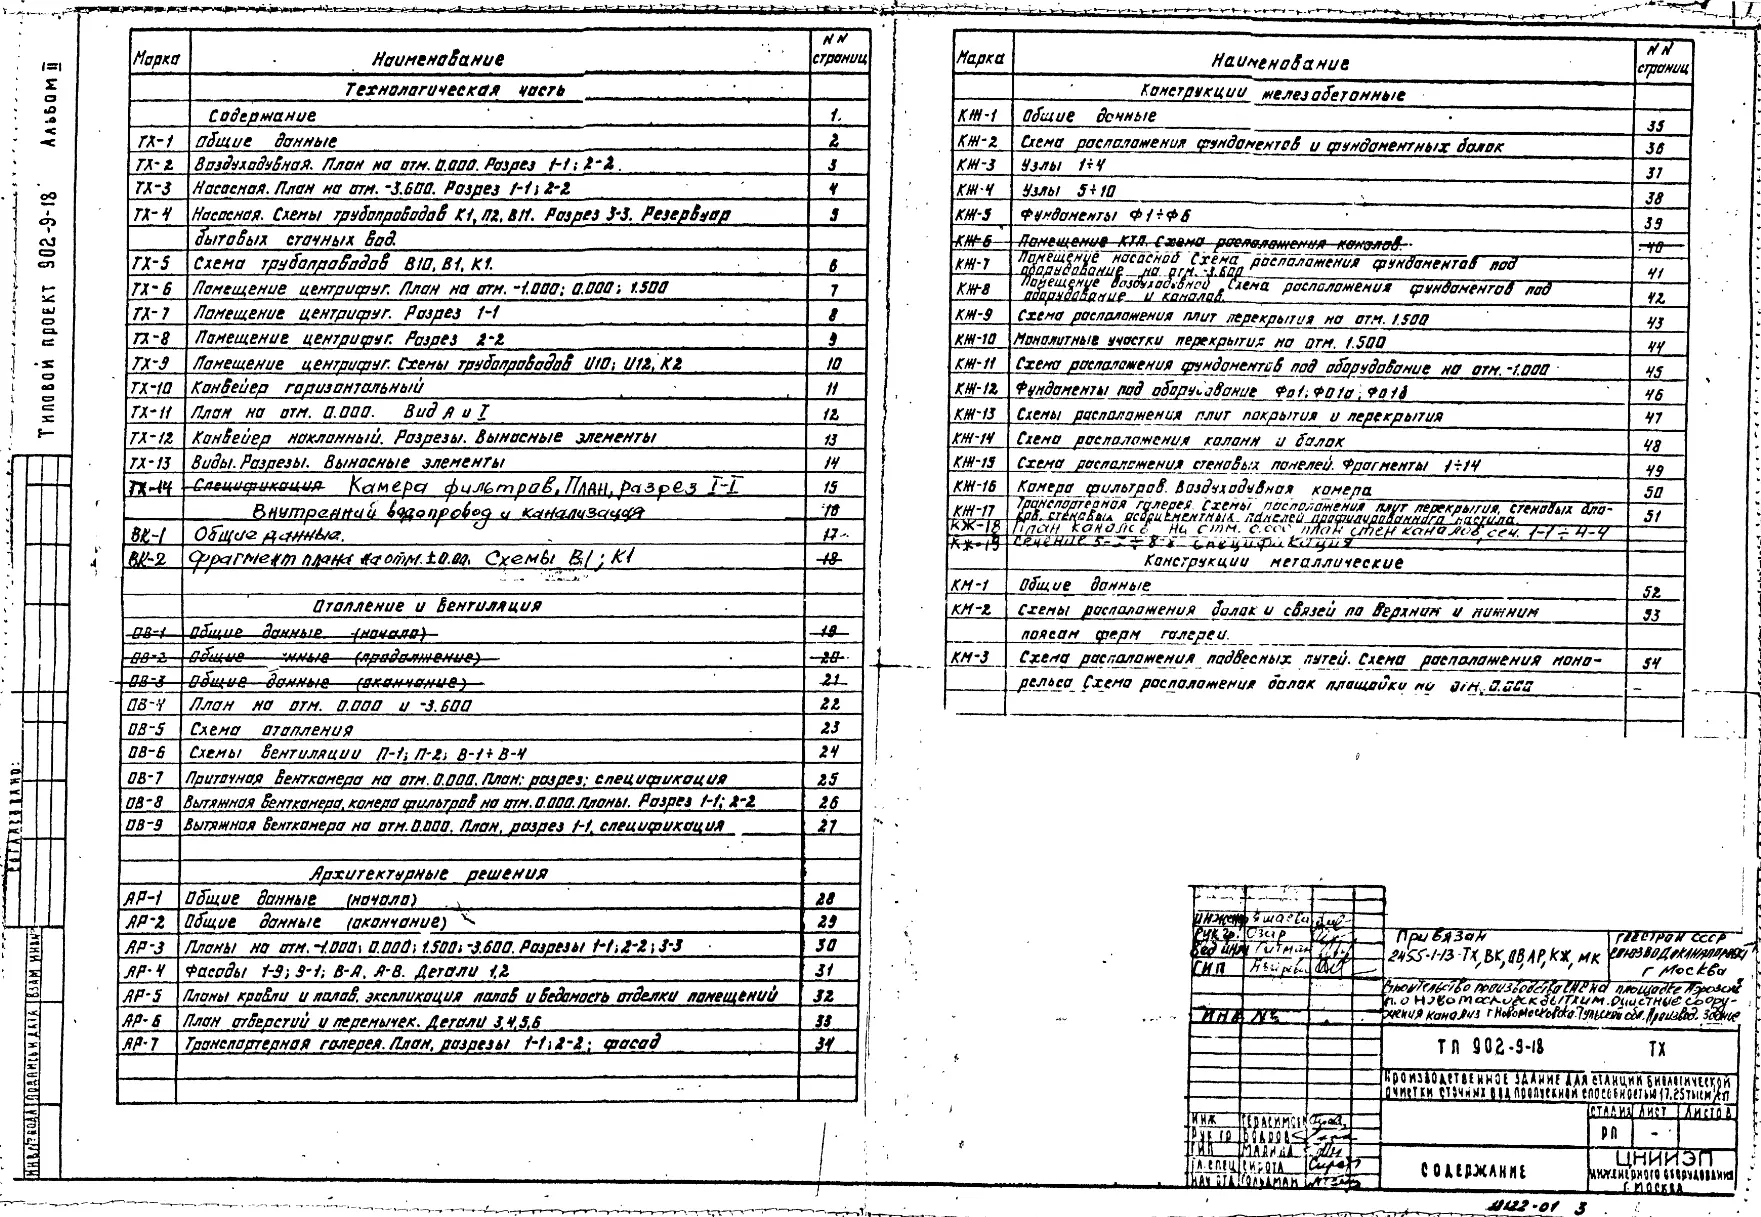 Типовой проект 902-9-18 Альбом II
Марка Наименование NN страниц
Технологическая часть
Содержание 1.
ТХ-1 Общие данные 2
ТХ-2 Воздуходувная. План на отм. 0.000. Разрез 1-1; 2-2. 3
ТХ-3 Насосная. План на отм. -3.600. Разрез 1-1; 2-2 4
ТХ-4 Насосная. Схемы трубопроводов К1, П2, В11. Разрез 3-3. Резервуар 5
бытовых сточных вод.
ТХ-5 Схема трубопроводов В10, В1, К1. 6
ТХ-6 Помещение центрифуг. План на отм. -1.000; 0.000; 1.500 7
ТХ-7 Помещение центрифуг. Разрез 1-1 8
ТХ-8 Помещение центрифуг. Разрез 2-2 9
ТХ-9 Помещение центрифуг. Схемы трубопроводов И10; И12, К2 10
ТХ-10 Конвейер горизонтальный 11
ТХ-11 План на отм. 0.000. Вид А и Г 12
ТХ-12 Конвейер наклонный. Разрезы. Выносные элементы 13
ТХ-13 Виды. Разрезы. Выносные элементы 14
ТХ-14 Спецификация Камера фильтров, План, разрез I-I 15
Внутренний водопровод и канализация 16
ВК-1 Общие данные. 17
ВК-2 Фрагмент плана на отм. ±0.00. Схемы В1; К1 18
Отопление и вентиляция
ОВ-1 Общие данные (начало) 19
ОВ-2 Общие данные (продолжение) 20
ОВ-3 Общие данные (окончание) 21
ОВ-4 План на отм. 0.000 и -3.600 22
ОВ-5 Схема отопления 23
ОВ-6 Схемы вентиляции П-1; П-2; В-1÷В-4 24
ОВ-7 Приточная венткамера на отм. 0.000. План; разрез; спецификация 25
ОВ-8 Вытяжная венткамера, камера фильтров на отм. 0.000. Планы. Разрез 1-1; 2-2 26
ОВ-9 Вытяжная венткамера на отм. 0.000. План, разрез 1-1, спецификация 27
Архитектурные решения
АР-1 Общие данные (начало) 28
АР-2 Общие данные (окончание) 29
АР-3 Планы на отм. -1.000; 0.000; 1.500; -3.600. Разрезы 1-1; 2-2; 3-3 30
АР-4 Фасады 1-9; 9-1; В-А, А-В. Детали 1,2 31
АР-5 Планы кровли и полов, экспликация полов и ведомость отделки помещений 32
АР-6 План отверстий и перемычек. Детали 3,4,5,6 33
АР-7 Транспортерная галерея. План, разрезы 1-1; 2-2; фасад 34
Марка Наименование NN страниц
Конструкции железобетонные
КЖ-1 Общие данные 35
КЖ-2 Схема расположения фундаментов и фундаментных балок 36
КЖ-3 Узлы 1÷4 37
КЖ-4 Узлы 5÷10 38
КЖ-5 Фундаменты Ф1÷Ф6 39
КЖ-6 Помещение КТП. Схема расположения каналов. 40
КЖ-7 Помещение насосной Схема расположения фундаментов под
оборудование на отм. -3.600 41
КЖ-8 Помещение воздуходувной Схема расположения фундаментов под
оборудование и каналов. 42
КЖ-9 Схема расположения плит перекрытия на отм. 1.500 43
КЖ-10 Монолитные участки перекрытия на отм. 1.500 44
КЖ-11 Схема расположения фундаментов под оборудование на отм. -1.000 45
КЖ-12 Фундаменты под оборудование Фо1; Фо1а; Фо1б 46
КЖ-13 Схемы расположения плит покрытия и перекрытия 47
КЖ-14 Схема расположения колонн и балок 48
КЖ-15 Схема расположения стеновых панелей. Фрагменты 1÷14 49
КЖ-16 Камера фильтров. Воздуходувная камера 50
КЖ-17 Транспортерная галерея. Схемы расположения плит перекрытия, стеновых 51
КЖ-18 План каналов на отм. 0.000 план стен каналов, сеч. 1-1÷4-4
КЖ-19 Сечение 5-5÷8-8 Спецификация
Конструкции металлические
КМ-1 Общие данные 52
КМ-2 Схемы расположения балок и связей по верхним и нижним 53
поясам ферм галереи.
КМ-3 Схема расположения подвесных путей. Схема расположения моно- 54
рельса Схема расположения балок площадки на отм. 0.000
Рук. гр. Озар
Вед инж Гитман
ГИП
Инв №
Привязан
2455-1-13 ТХ, ВК, ОВ, АР, КЖ, МК
Госстрой СССР
г Москва
ТП 902-9-18 ТХ
Производственное здание для станции биологической
очистки сточных вод пропускной способностью 17,25 тыс м³/сут
стадия лист листов
РП -
Содержание
ЦНИИЭП
инженерного оборудования
г. Москва
Инж Герасимов
Рук гр
ГИП
Гл. спец Сирота
Нач отд Гольдман
Согласовано:
Инв № подл Подпись и дата Взам инв №
3